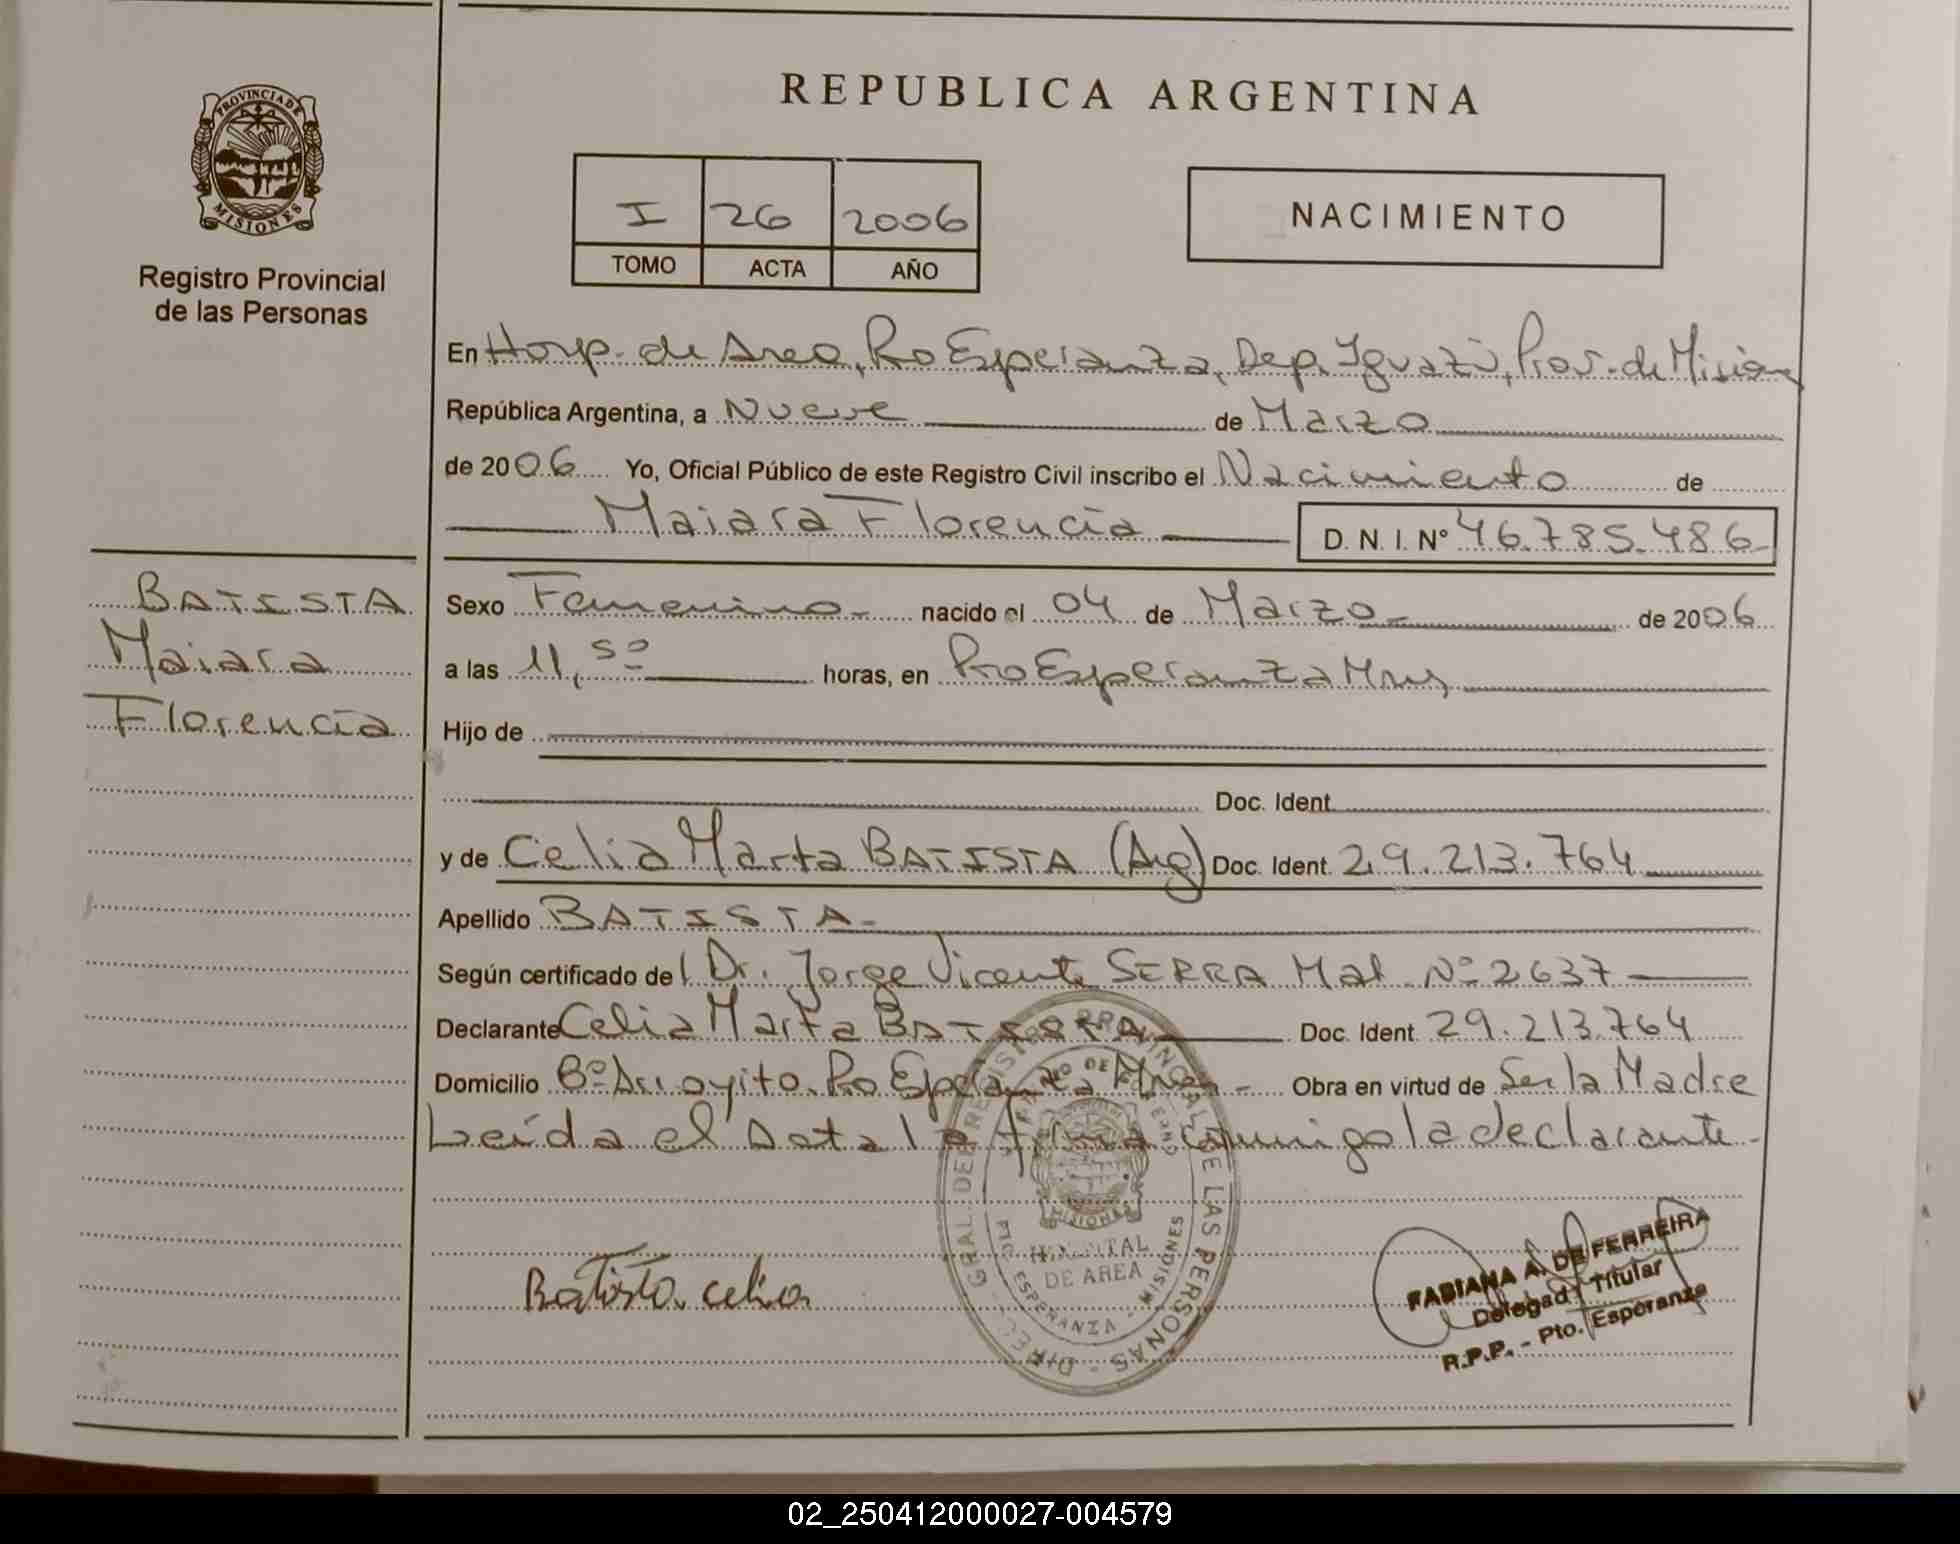 REPUBLICA ARGENTINA
PROVINCIA DE
MISIONES
Registro Provincial
de las Personas
I 26 2006
TOMO ACTA AÑO
NACIMIENTO
En Hosp. de Area, Pto Esperanza, Dep. Iguazú, Prov. de Misiones
República Argentina, a Nueve de Marzo
de 2006 Yo, Oficial Público de este Registro Civil inscribo el Nacimiento de
Maiara Florencia D. N. I. Nº 46.785.486-
BATISTA
Maiara
Florencia
Sexo Femenino- nacido el 04 de Marzo- de 2006
a las 11,50 horas, en Pto Esperanza Mnes
Hijo de
Doc. Ident.
y de Celia Marta BATISTA (Arg) Doc. Ident. 29.213.764
Apellido BATISTA-
Según certificado del Dr. Jorge Vicente SERRA Mat. Nº 2637
Declarante Celia Marta BATISTA Doc. Ident. 29.213.764
Domicilio Bº Arroyito. Pto Esperanza Mnes - Obra en virtud de Ser la Madre
Leída el Acta la firma conmigo la declarante-
DIREC. GRAL. DEL REGISTRO PROVINCIAL DE LAS PERSONAS
MISIONES
HOSPITAL
DE AREA
PTO. ESPERANZA - MISIONES
Batista celia
FABIANA A. DE FERREIRA
Delegada Titular
R.P.P. - Pto. Esperanza
02_250412000027-004579